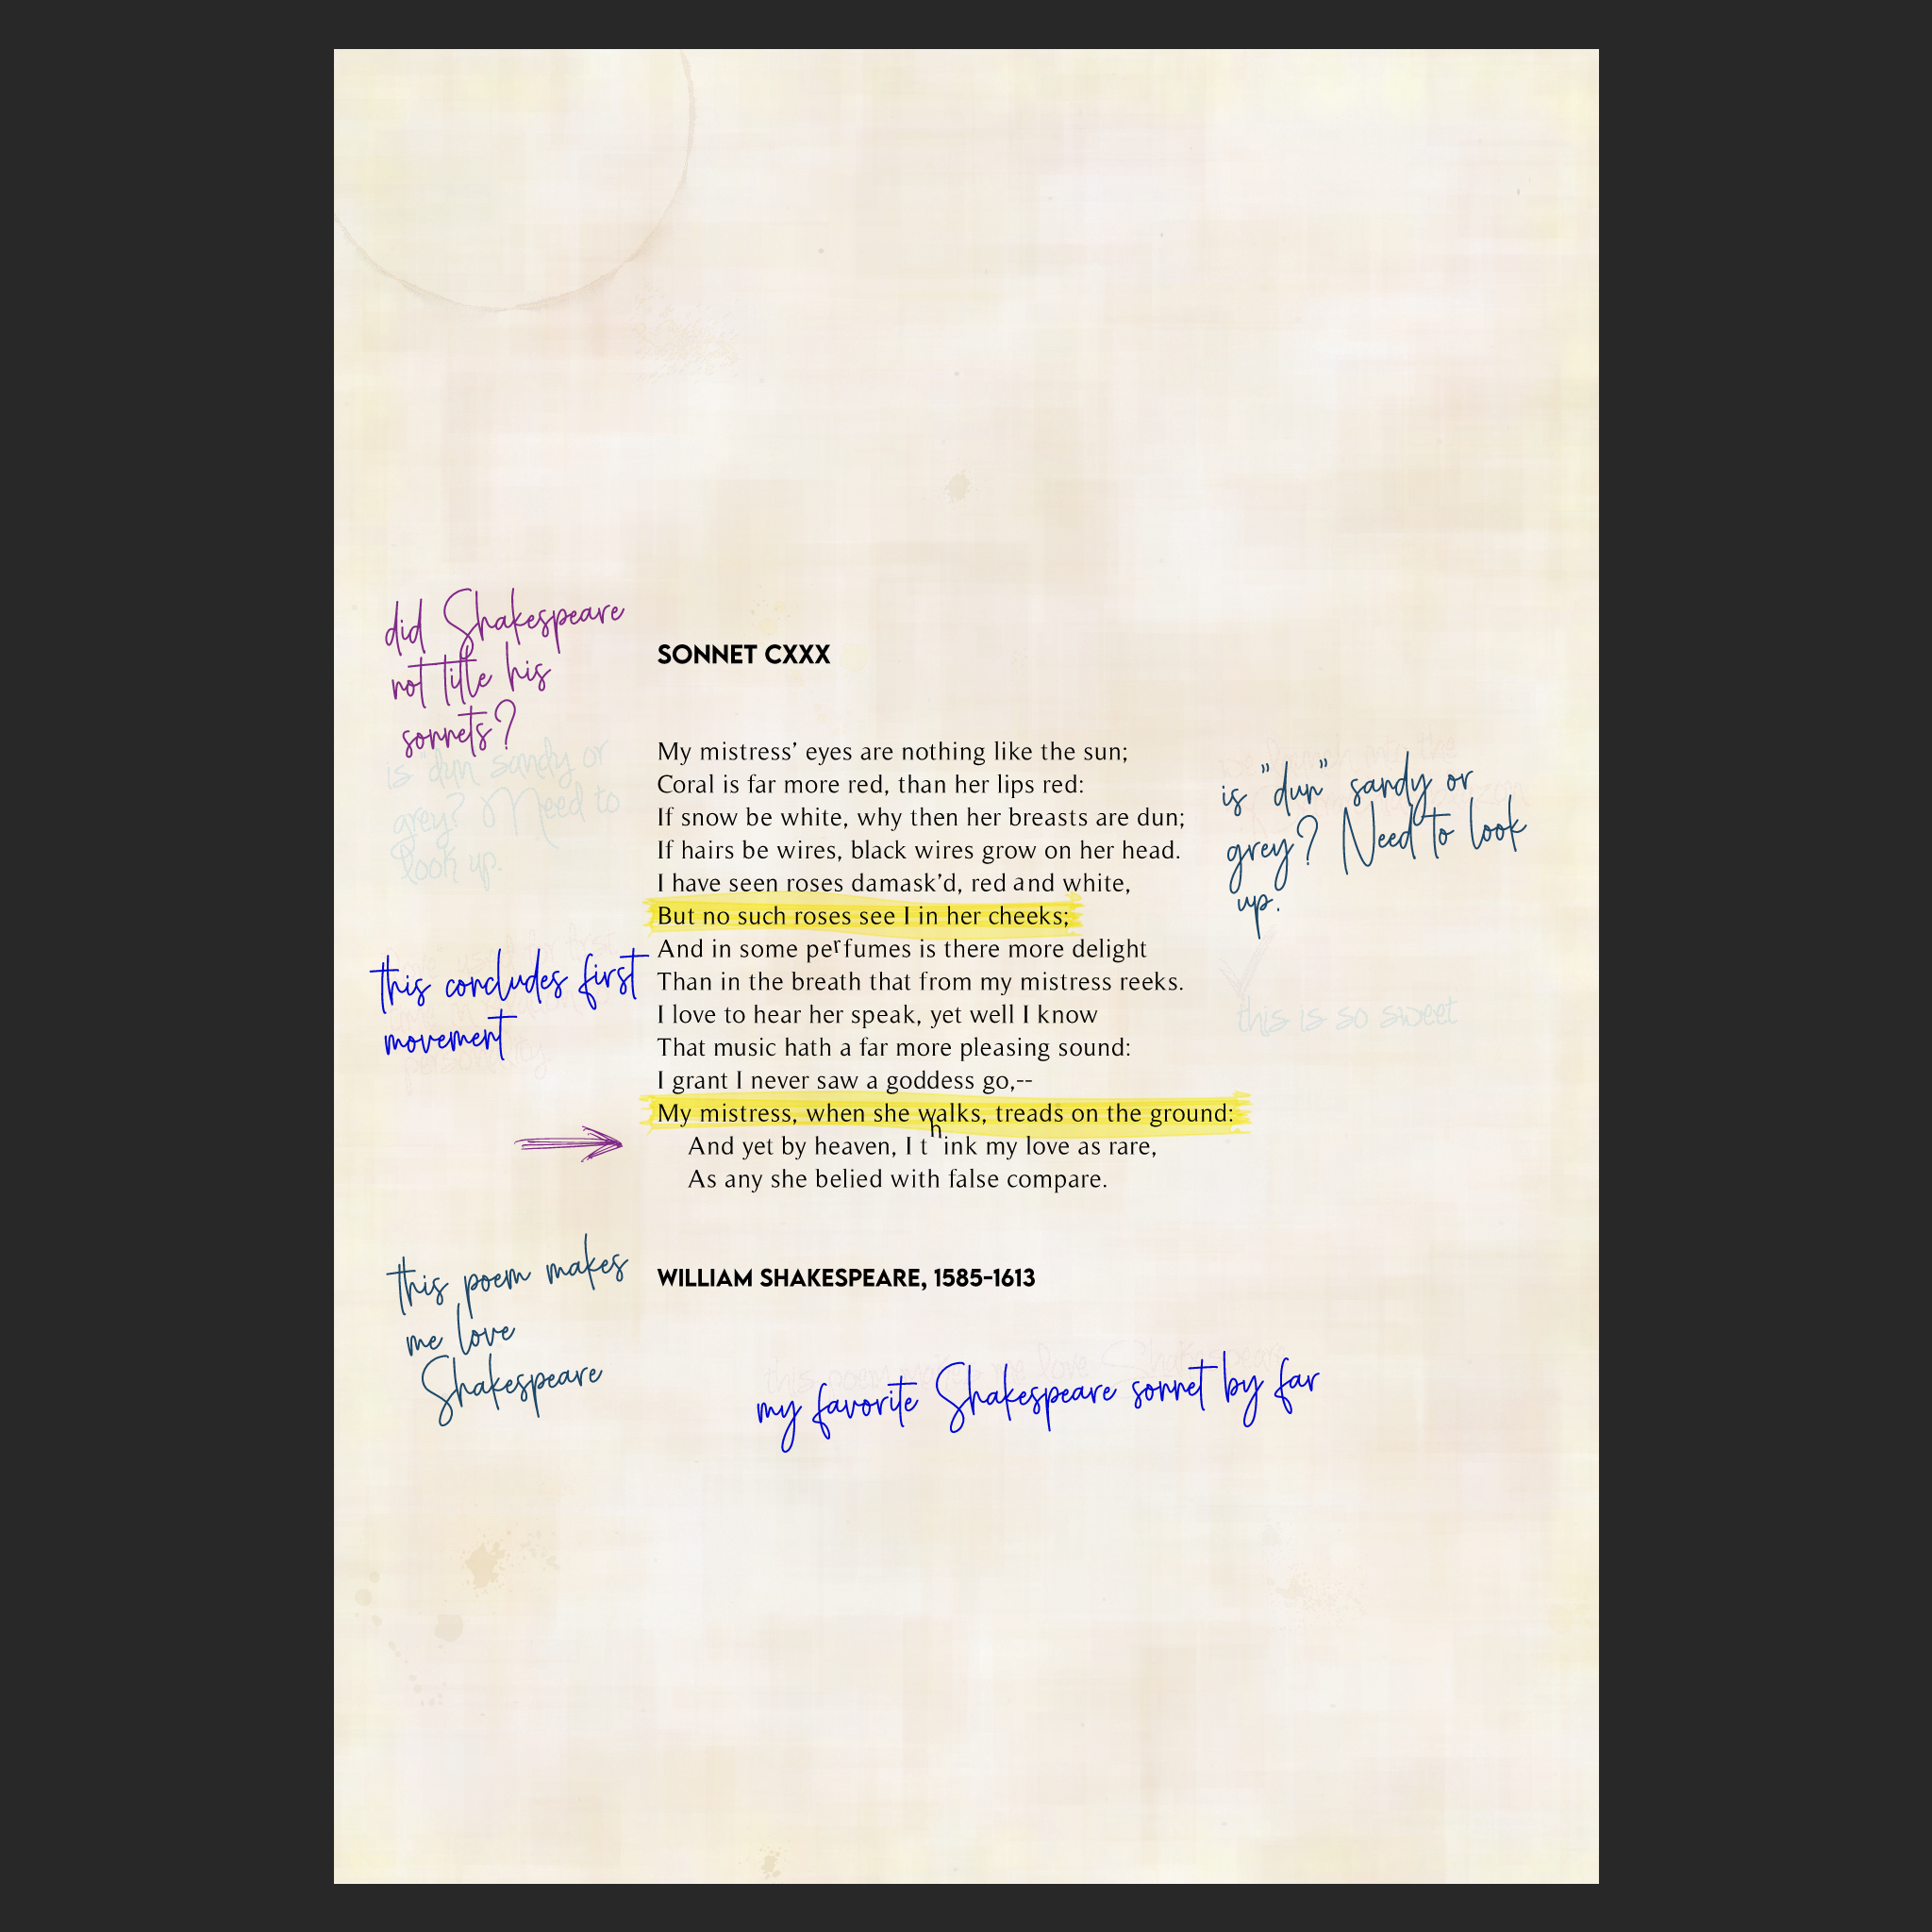 did Shakespeare
not title his
sonnets?
SONNET CXXX
is "dun" sandy or
grey? Need to
look up.
My mistress’ eyes are nothing like the sun;
Coral is far more red, than her lips red:
If snow be white, why then her breasts are dun;
If hairs be wires, black wires grow on her head.
I have seen roses damask’d, red and white,
But no such roses see I in her cheeks;
And in some perfumes is there more delight
Than in the breath that from my mistress reeks.
I love to hear her speak, yet well I know
That music hath a far more pleasing sound:
I grant I never saw a goddess go,--
My mistress, when she walks, treads on the ground:
And yet by heaven, I think my love as rare,
As any she belied with false compare.
is "dun" sandy or
grey? Need to look
up.
this concludes first
movement
this is so sweet
WILLIAM SHAKESPEARE, 1585-1613
this poem makes
me love
Shakespeare
this poem makes me love Shakespeare
my favorite Shakespeare sonnet by far